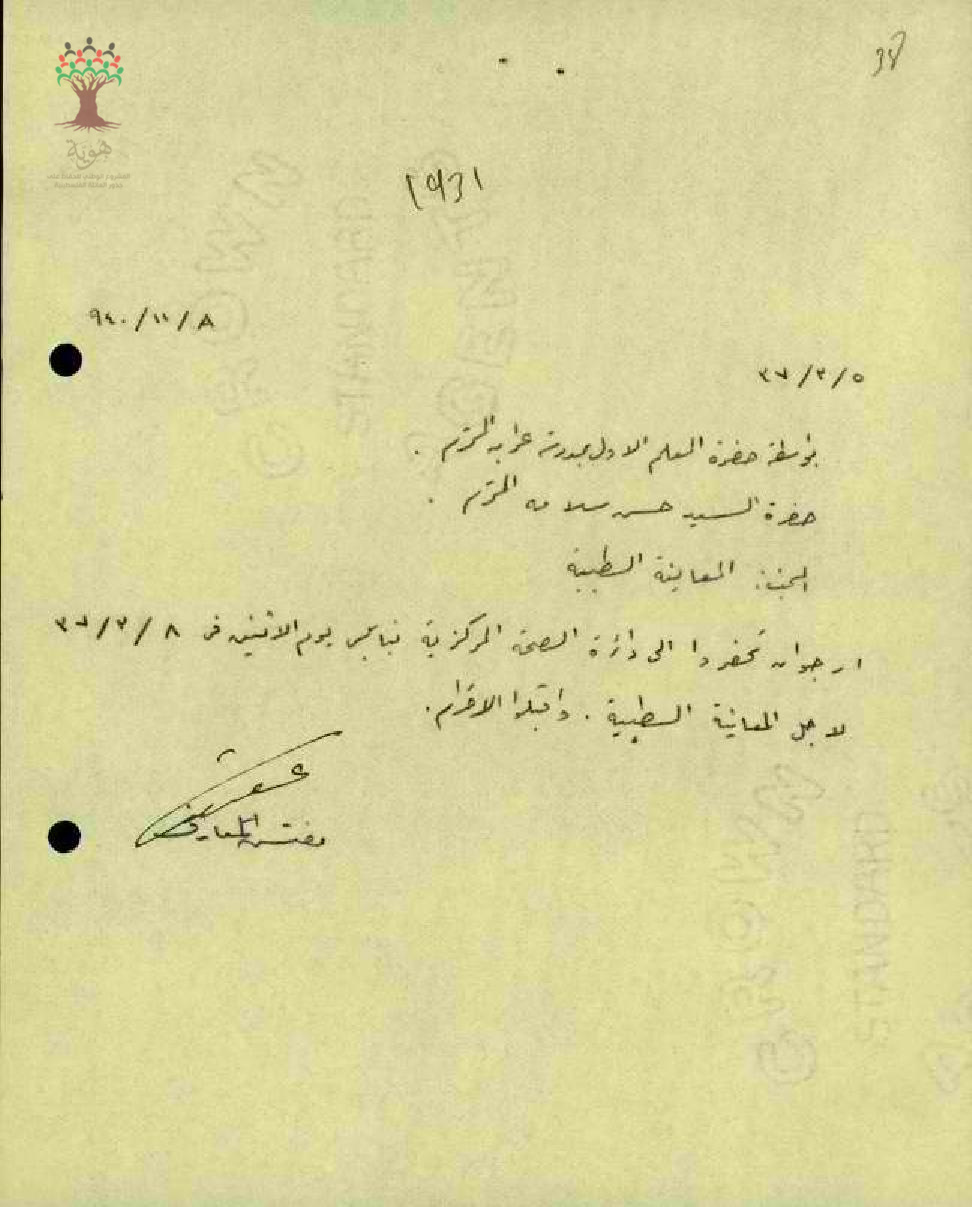 38
هوية
1931
٩٤٠/١١/٨
٣٧/٣/٥
بواسطة حضرة المعلم الاول بمدرسة عرابه المحترم .
حضرة السيد حسن سلامه المحترم .
المعاينة الطبية
ارجو ان تحضروا الى دائرة الصحة المركزية بنابلس يوم الاثنين في ٣٧/٣/٨
لاجل المعاينة الطبية . واقبلوا الاحترام .
مفتش المعارف
STANDARD